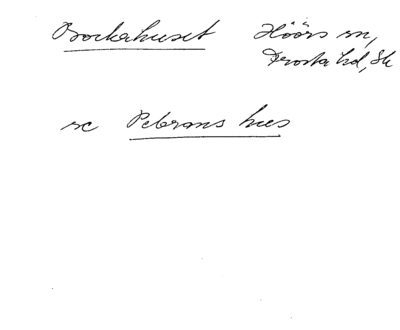 Bockahuset Höörs sn,
Frosta hd, Sk
se Petersns hus